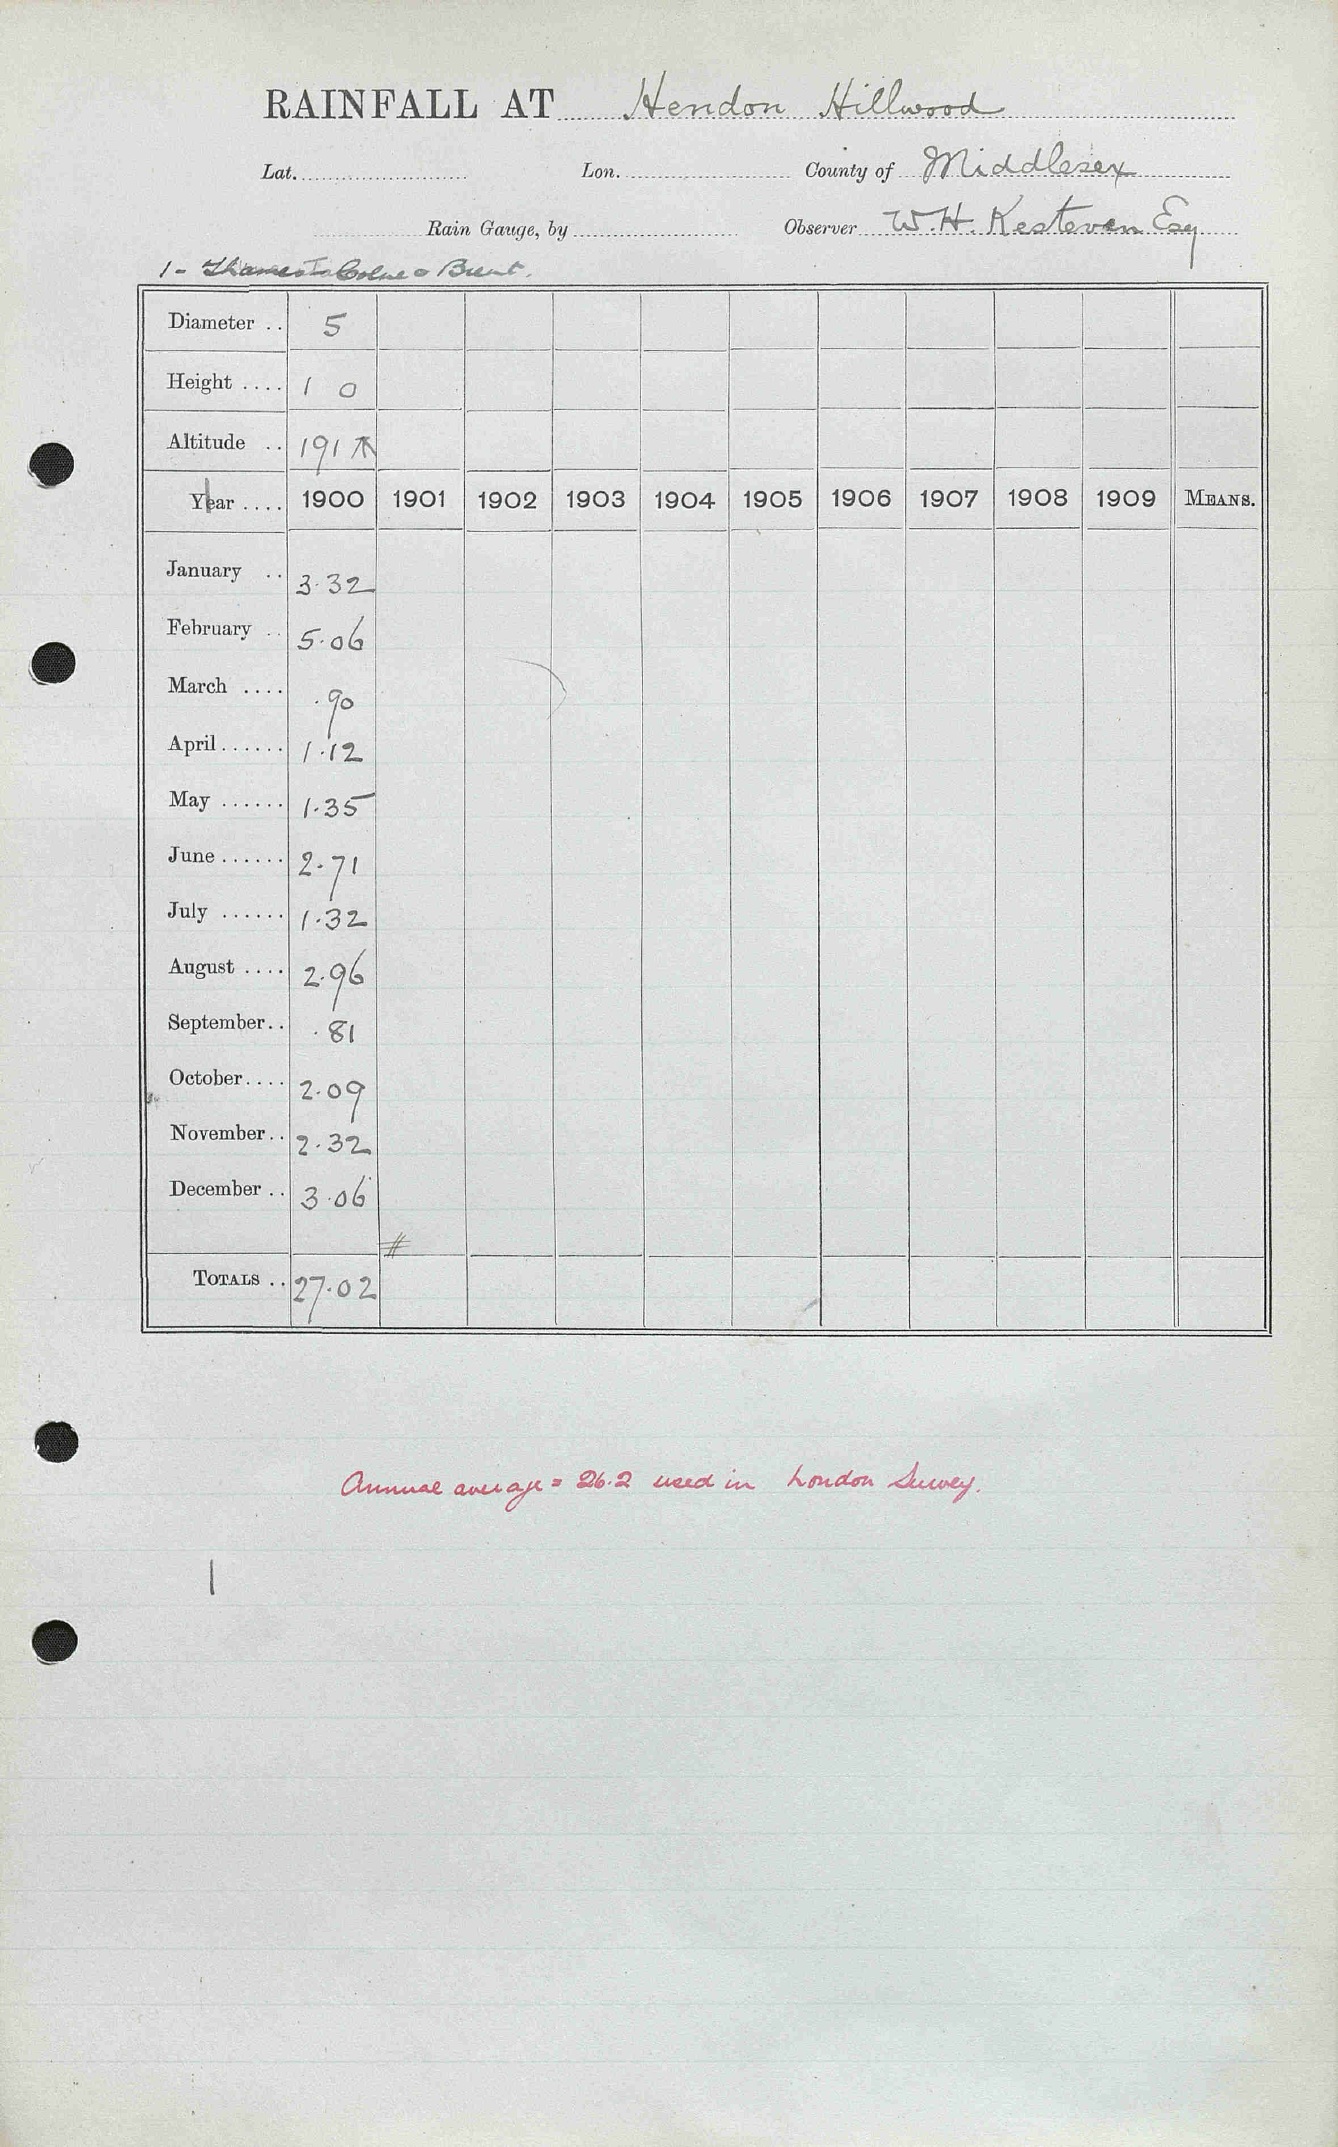 RAINFALL AT Hendon Hillwood
Lat. Lon. County of Middlesex
Rain Gauge, by Observer W. H. Kesteven Esq
1 - Thames Colne & Brent.
Diameter .. 5
Height .... 1 0
Altitude .. 191
Year .... 1900 1901 1902 1903 1904 1905 1906 1907 1908 1909 MEANS.
January .. 3.32
February .. 5.06
March .... .90
April ...... 1.12
May ...... 1.35
June ...... 2.71
July ...... 1.32
August .... 2.96
September .. .81
October .... 2.09
November .. 2.32
December .. 3.06
#
TOTALS .. 27.02
Annual average = 26.2 used in London Survey.